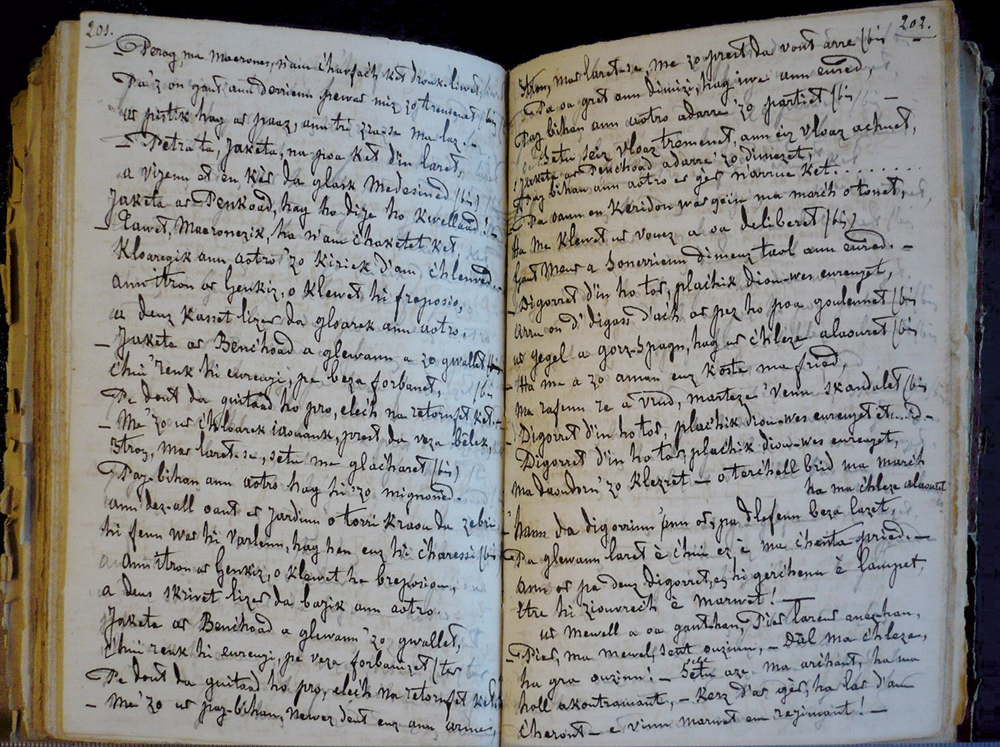 201.
— Perag, ma Maerones, n'am c'harfac'h ket dronk-livet,
Pa'z on gant ann dorrienn pewar miz zo tremenet (bis
ar pistik hag ar paaz, ann tri zra-se ma laz. —
— Petra ta, Jaketa, na poa ket d'in laret,
a vijenn et en kêr da glask Medesined (bis)
Jaketa ar Penkoad, hag ho dije ho kwelleat! —
— Tawet, Maeronezik, ha n'am c'haketet ket
Kloaregik ann aotro 'zo kiriek d'am c'hlenved. —
ann itron ar Genkiz, o klewet hi froposio,
a deuz kasset lizer da gloarek ann aotro,
— Jaketa ar Penc'hoad a glewann a zo gwallet (bis
C'hui 'renk hi eureuji, pe beza forbanet, (bis
Pe dont da guitaad ho pro, elec'h na retornfet ket. —
— Me 'zo ur c'hloarek iaouank, prest da veza bêlek,
Itron, mar laret-se, setu me glac'haret (bis)
Paz-bihan ann aotro hag hi 'zo mignoned. —
ann dez-all oant er jardinn o torri kraou da zebri
hi fenn war hi varlenn, hag hen euz hi c'haressi (bis
Ann itron ar Genkiz, o klewet he breposiou,
a deus skrivet lizer da bajik ann aotro.
Jaketa ar Benc'hoad a glewann 'zo gwallet,
C'hui renk hi eureuji, pe veza forbanizet (ter
Pe dont da guitad ho pro, elec'h na retornfet ket
— Me 'zo ur paz-bihan, newez deut euz ann arme,
202.
Itron, mar laret-se, me zo prest da vont arre (bis
— Pa oa gret ann dimizi, hag iwe ann eured,
Paz bihan ann aotro adarre 'zo partiet (bis —
Setu seiz vloaz tremenet, ann eiz vloaz achuet,
Jaketa ar Penc'hoad adarre 'zo dimezet,
Paz bihan ann aotro er gêr n'arriue ket. . . . . . . . .
— Pa oann en Keridon war gein ma marc'h o tonet,
Ha me klewet ur vouez a oa deliberet (bis)
Gant Meur a Sonerrienn dimeuz taol ann eured. —
— Digorret d'in ho tor, plac'hik diou-wes eureujet,
Arru on d' digass d'ac'h ar pez ho poa goulennet (bis
ur gegel a gorz-Spagn, hag ur c'hleze alaouret (bis
— Ha me a zo aman euz koste ma friad,
Ma zafenn ze a vrud, marteze 'venn skandalet (bis
— Digorret d'in ho tor, plac'hik diou-wes eureujet et....d —
Digorret d'in ho tor, plac'hik diou-wes eureujet,
Ma daouarn 'zo klezret — o terc'hell brid ma marc'h
ha ma c'hleze alaouret
— hann da digorrinn 'pnn or, pa dlefenn beza lazet,
Pa glewann laret ê c'hui ez ê ma c'henta pried. —
Ann or pa deuz digorret, ez hi gerc'henn ê lampet,
Etre hi ziouvrec'h ê marwet! —
ur Mewell a oa gant-han, Pier larer anez-han,
— Pier, ma mewel, sent ouzinn, — Dal ma c'hleze,
ha gra ouzinn! — Setu aze ma arc'hant, ha ma
holl akontramant, — Kerz d'ar gêr, ha lar d'am
c'herent — e venn marwet en rejimant! —